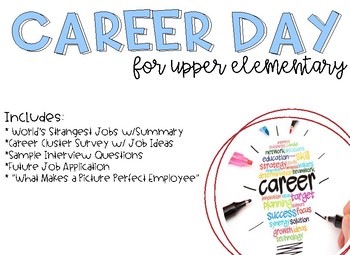 CAREER DAY
for upper elementary
Includes:
* World's Strangest Jobs w/Summary
*Career Cluster Survey w/ Job Ideas
*Sample Interview Questions
*Future Job Application
* "What Makes a Picture Perfect Employee"
network
education
skill
strategy
teamwork
career
target
planning
support
success focus
synergy solution
growth ideas
technology